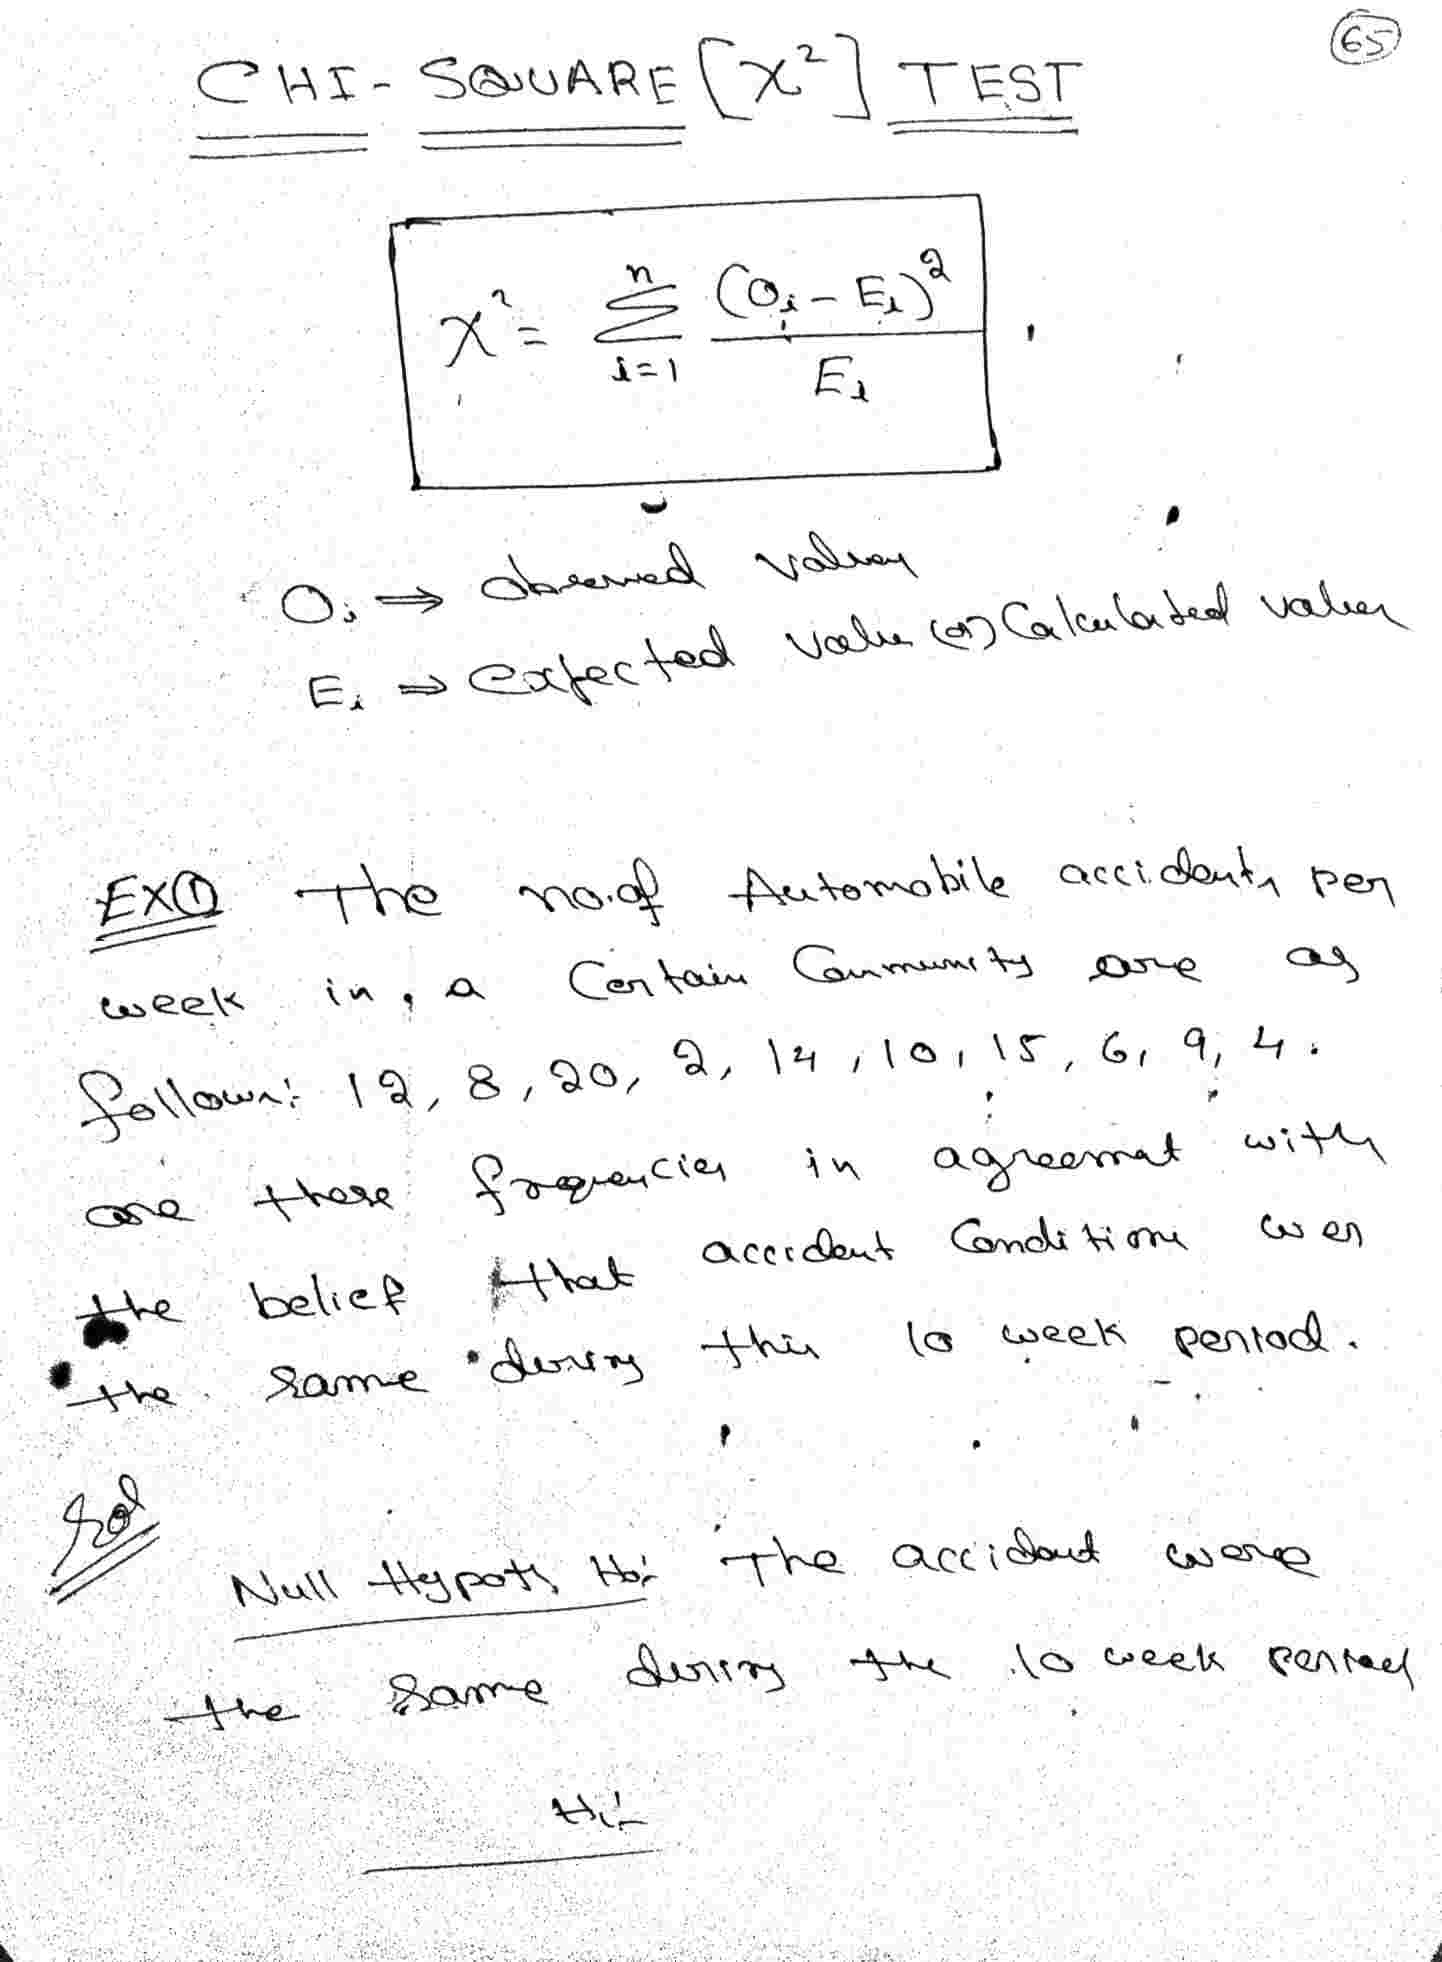 65
CHI-SQUARE [χ²] TEST
χ² = n Σ i=1 (Oi - Ei)² / Ei
Oi ⇒ observed values
Ei ⇒ expected value (or) Calculated values
Ex① The no.of Automobile accidents per
week in a Certain Community are as
follows: 12, 8, 20, 2, 14, 10, 15, 6, 9, 4.
are these frequencies in agreemat with
the belief that accident Conditions wer
the same during this 10 week period.
Sol
Null Hypoth Ho: The accident were
the same during the 10 week period
H1: